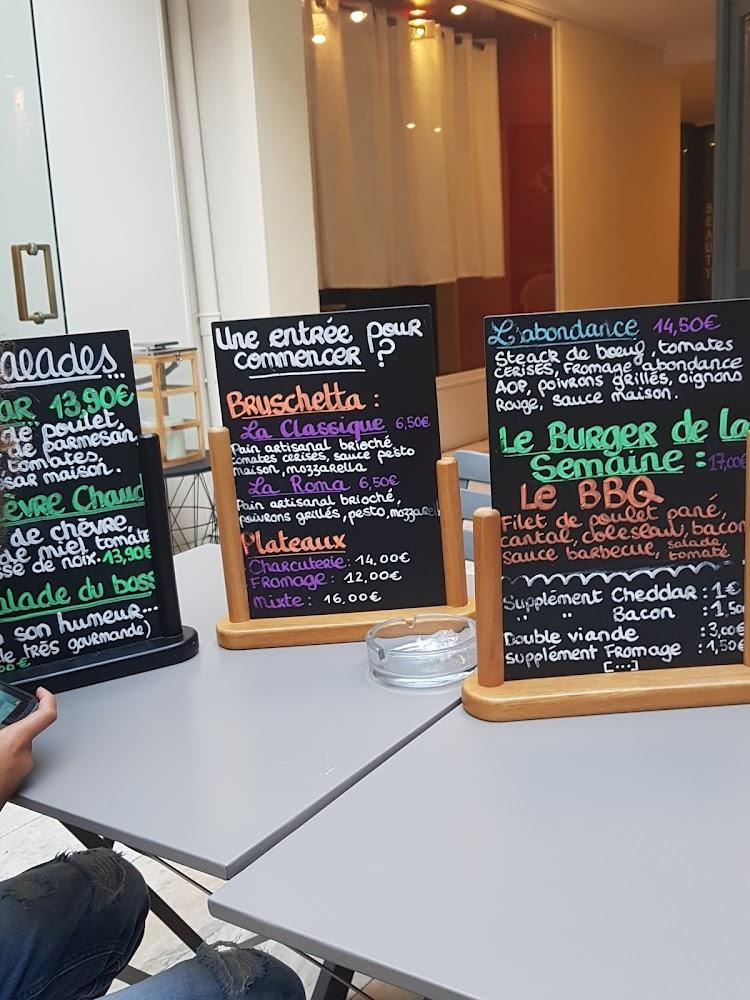 alades...
AR 13,90€
de poulet,
de parmesan,
tomates,
sar maison.
èvre Chaud
de chèvre,
de miel, tomate
sse de noix. 13,90€
alade du boss
son humeur...
de très gourmande)
Une entrée pour
commencer ?
Bruschetta :
La Classique 6,50€
Pain artisanal brioché,
tomates cerises, sauce pesto
maison, mozzarella
La Roma 6,50€
Pain artisanal brioché,
poivrons grillés, pesto, mozzarel
Plateaux
Charcuterie : 14,00€
Fromage : 12,00€
Mixte : 16,00€
L'abondance 14,50€
Steack de boeuf, tomates
cerises, fromage abondance
AOP, poivrons grillés, oignons
Rouge, sauce maison.
Le Burger de La
Semaine : 17,00€
Le BBQ
Filet de poulet pané,
cantal, coleslaw, bacon
sauce barbecue, salade
tomate
Supplément Cheddar : 1€
" " Bacon : 1,50
Double viande : 3,00€
supplément Fromage : 1,50€
[...]
BEAUTY